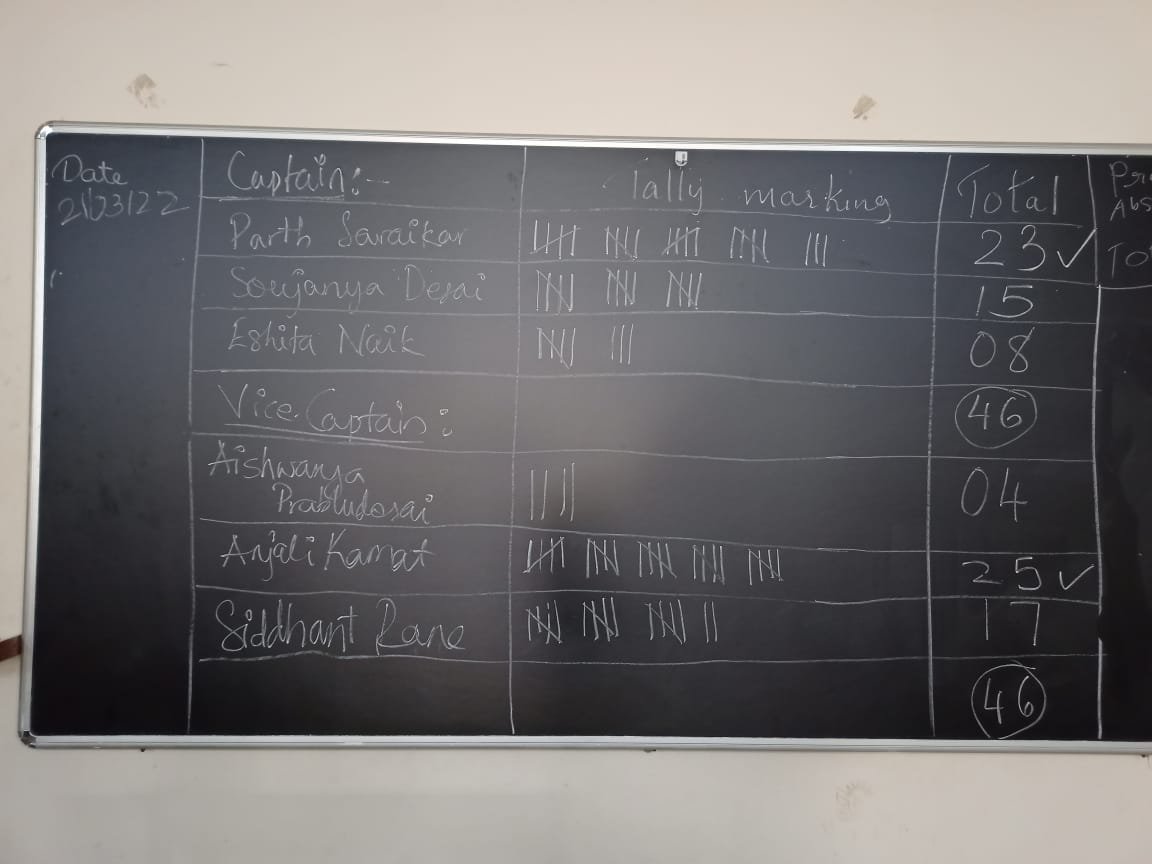 Date
21/03/22
Captain:-
Tally marking
Total
Parth Saraikar
23✓
Soujanya Desai
15
Eshita Naik
08
Vice Captain:
46
Aishwarya
Prabhudesai
04
Anjali Kamat
25✓
Siddhant Rane
17
46
Pr
Abs
To